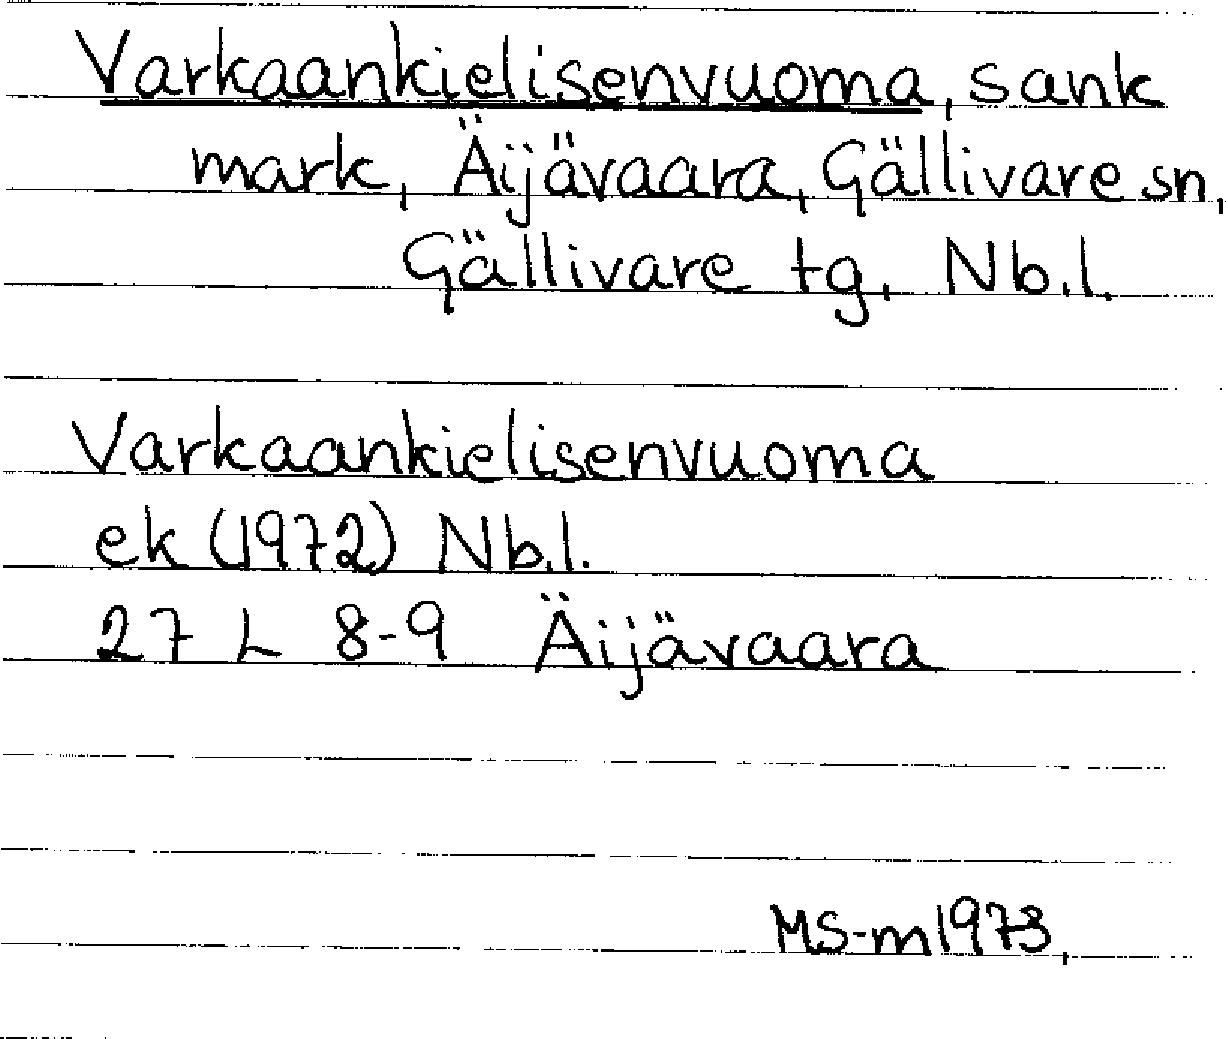 Varkaankielisenvuoma, sank
mark, Äijävaara, Gällivare sn,
Gällivare tg, Nb.l.
Varkaankielisenvuoma
ek (1972) Nb.l.
27 L 8-9 Äijävaara
MS-m 1973,